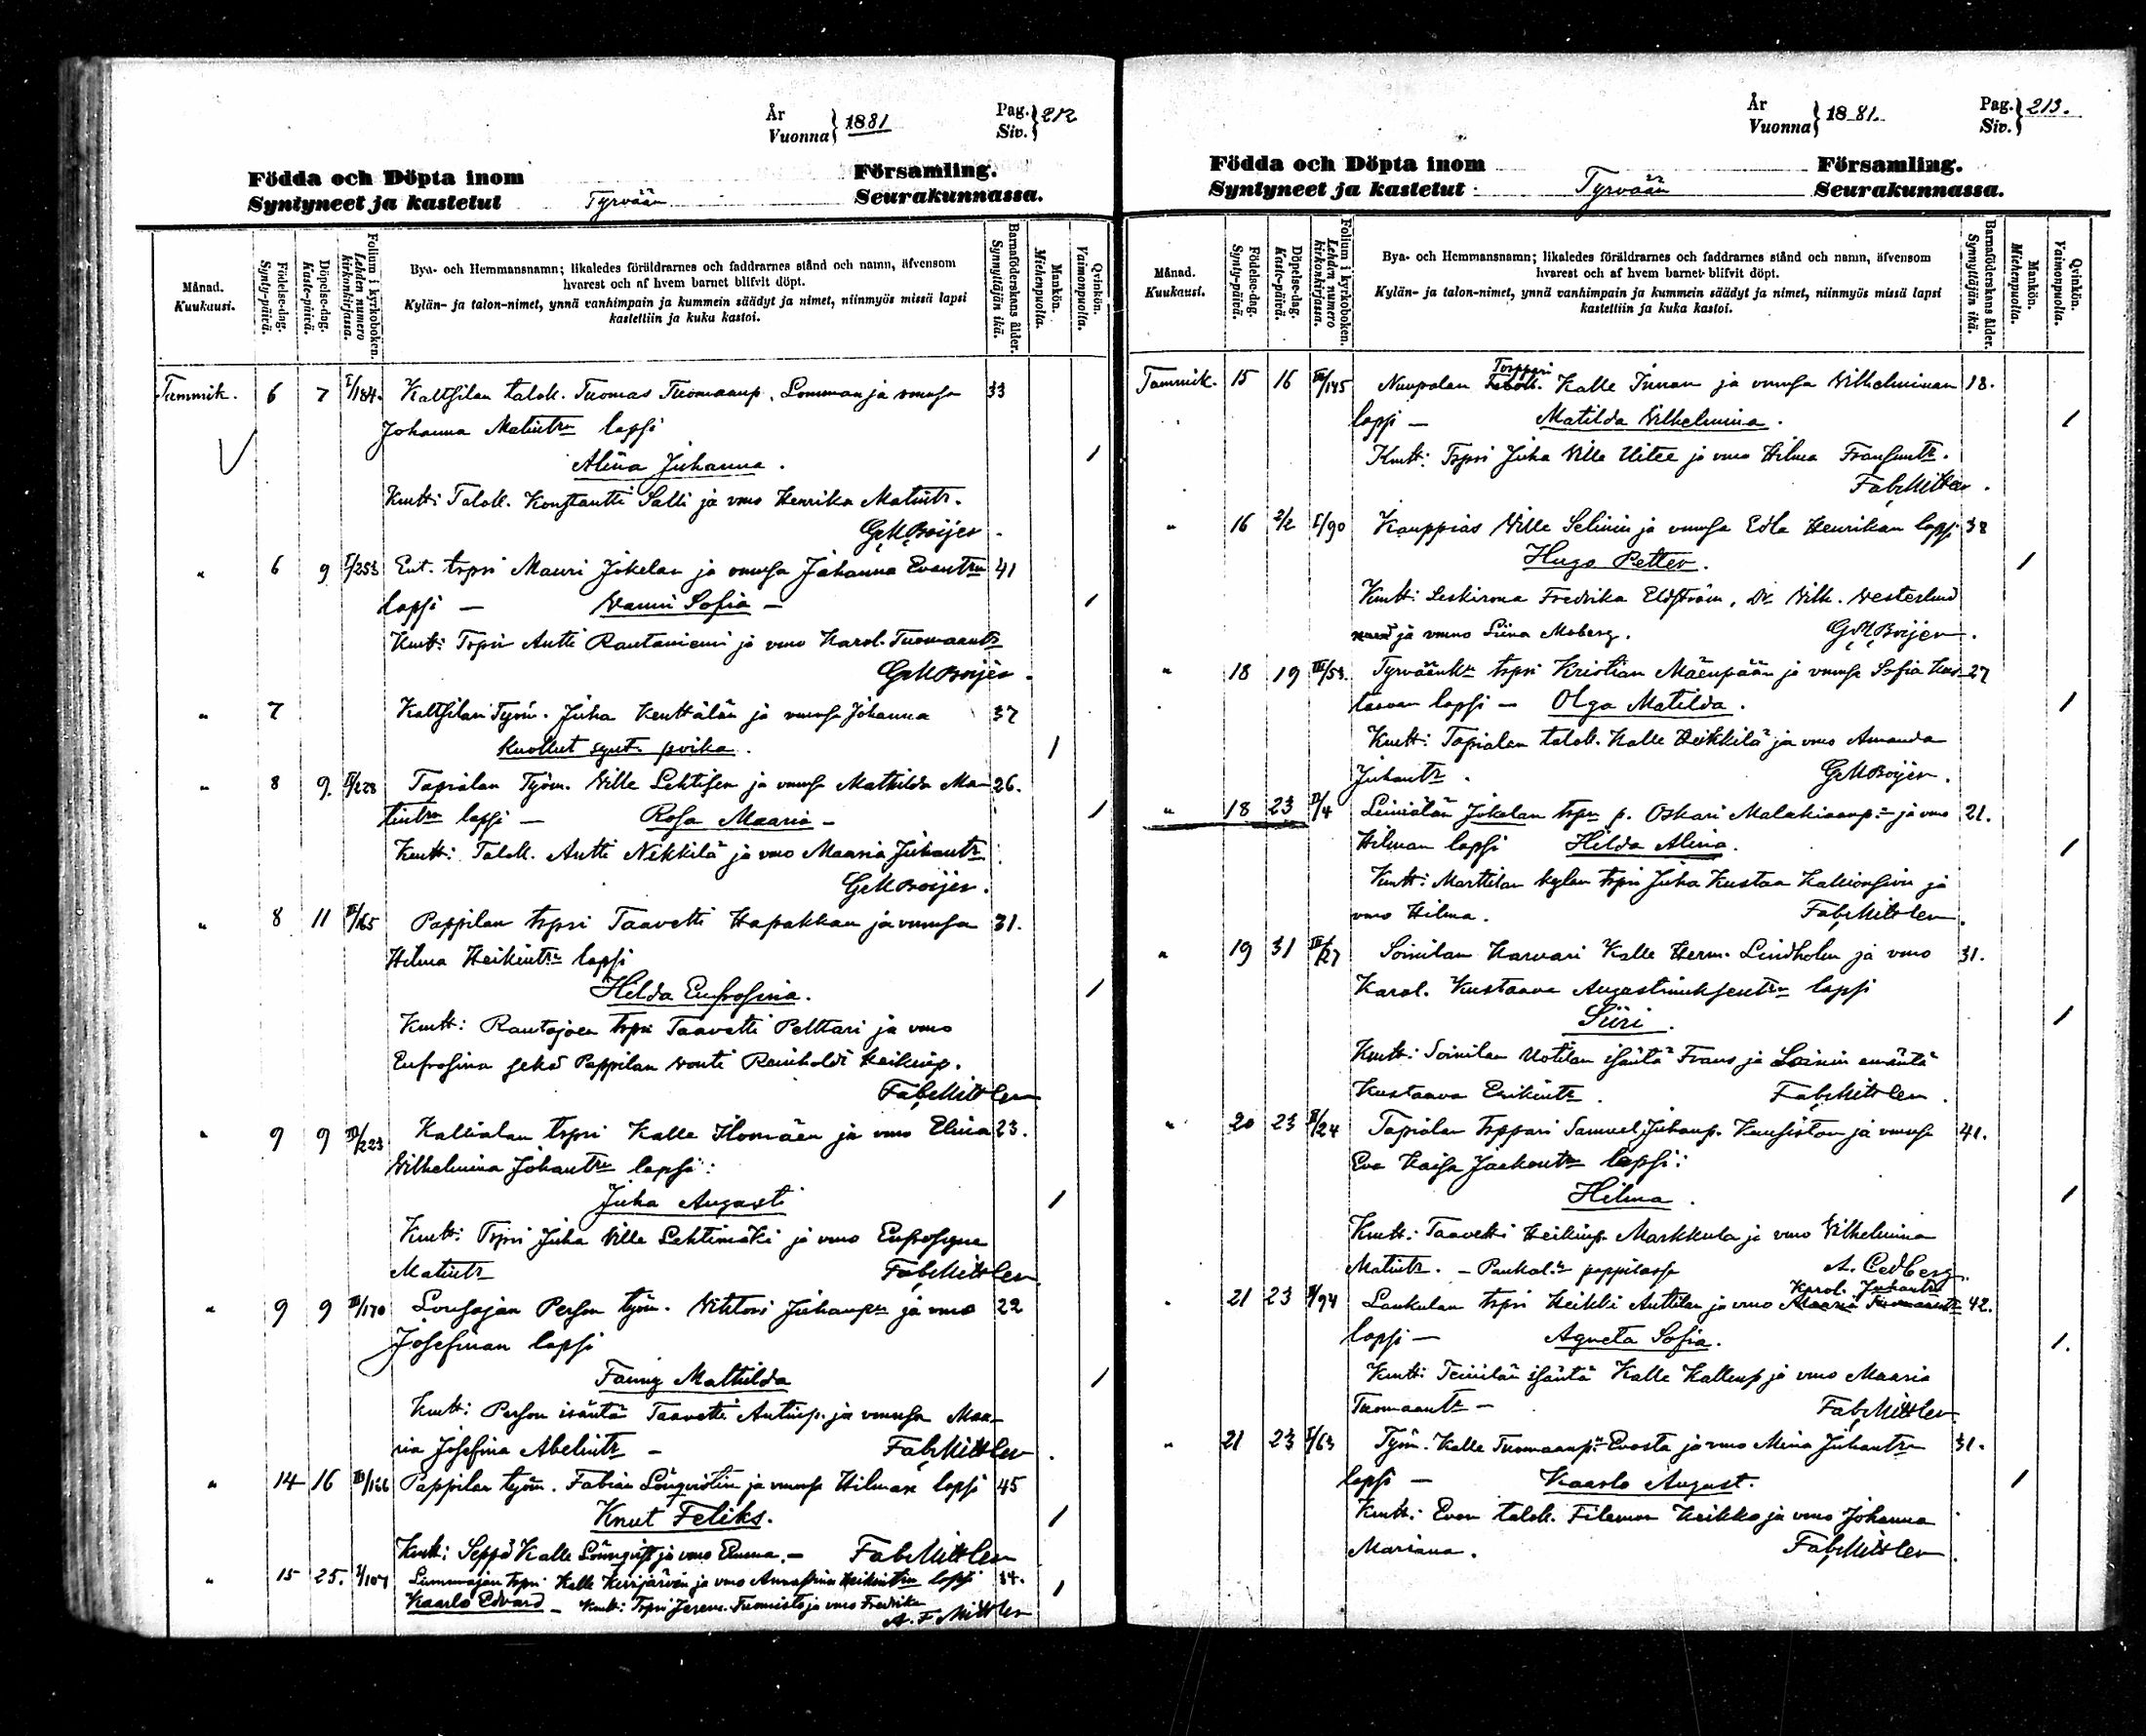 År
Vuonna} 1881
Pag.
Siv.} 212
Födda och Döpta inom Församling.
Syntyneet ja kastetut Tyrvään Seurakunnassa.
Månad.
Kuukausi.
Födelse-dag.
Synty-päivä.
Döpelse-dag.
Kaste-päivä.
Folium i kyrkoboken.
Lehden numero kirkonkirjassa.
Bya- och Hemmansnamn; likaledes föräldrarnes och faddrarnes stånd och namn, äfvensom
hvarest och af hvem barnet blifvit döpt.
Kylän- ja talon-nimet, ynnä vanhimpain ja kummein säädyt ja nimet, niinmyös missä lapsi
kastettiin ja kuka kastoi.
Barnaföderskans ålder.
Synnyttäjän ikä.
Mankön.
Miehenpuolta.
Qvinkön.
Vaimonpuolta.
Tammik. 6 7 I/184. Kaltsilan talok. Tuomas Tuomaanp. Lomman ja vmnsa 33
Johanna Matintrn lapsi
Alina Juhanna. 1
Kmtt: Talok. Konstantti Salli ja vmo Henrika Matintr.
G.M.Boijer.
" 6 9 I/253 Ent. trpri Mauri Jokelan ja vmnsa Johanna Evantrn 41
lapsi — Wanni Sofia — 1
Kmtt: Trpri Antti Rautaniemi ja vmo Karol. Tuomaantr
G.M.Boijer.
" 7 Kaltsilan Työm. Juha Kenttälän ja vmnsa Johanna 37
Kuollut synt. poika. 1
" 8 9. II/228 Tapiolan Työm. Wille Lehtisen ja vmnsa Mathilda Ma- 26.
tintrn lapsi — Rosa Maaria — 1
Kmtt: Talok. Antti Nekkilä ja vmo Maaria Juhantr
G.M.Boijer.
" 8 11 III/165 Pappilan trpri Taavetti Hapakkan ja vmnsa 31.
Hilma Heikintrn lapsi
Hilda Eufrosina. 1
Kmtt: Rautajoen trpri Taavetti Pelttari ja vmo
Eufrosina sekä Pappilan vouti Reinholdi Heikinp.
Fab.Mittler
" 9 9 III/223 Kallialan trpri Kalle Ilomäen ja vmo Elina 23.
Wilhelmina Johantrn lapsi:
Juha Augusti 1
Kmtt: Trpri Juha Wille Lehtimäki ja vmo Eufrosyna
Matintr Fab.Mittler.
" 9 9 III/170 Lousajan Person työm. Wihtori Juhanpn ja vmo 22
Josefinan lapsi
Fanny Mathilda 1
Kmtt: Person isäntä Taavetti Antinp. ja vmnsa Maa-
ria Josefina Abelintr — Fab.Mittler.
" 14 16 III/166 Pappilan työm. Fabian Lönqvistin ja vmnsa Hilman lapsi 45
Knut Feliks. 1
Kmtt: Seppä Kalle Lönnqvist ja vmo Emma. — Fab.Mittler
" 15 25. I/107 Lummajan trpri Kalle Kirjärvin ja vmo Annastiina Heikintrn lapsi 34.
Kaarlo Edvard — Kmtt: Trpri Jerem. Tuomisto ja vmo Fredrika 1
A.F.Mittler
År
Vuonna} 1881.
Pag.
Siv.} 213.
Födda och Döpta inom Församling.
Syntyneet ja kastetut Tyrvään Seurakunnassa.
Månad.
Kuukausi.
Födelse-dag.
Synty-päivä.
Döpelse-dag.
Kaste-päivä.
Folium i kyrkoboken.
Lehden numero kirkonkirjassa.
Bya- och Hemmansnamn; likaledes föräldrarnes och faddrarnes stånd och namn, äfvensom
hvarest och af hvem barnet blifvit döpt.
Kylän- ja talon-nimet, ynnä vanhimpain ja kummein säädyt ja nimet, niinmyös missä lapsi
kastettiin ja kuka kastoi.
Barnaföderskans ålder.
Synnyttäjän ikä.
Mankön.
Miehenpuolta.
Qvinkön.
Vaimonpuolta.
Torppari
Tammik. 15 16 III/145 Nuupalan Talok. Kalle Innan ja vmnsa Wilhelminan 18.
lapsi — Matilda Wilhelmina. 1
Kmtt: Trpri Juha Wille Uitee ja vmo Hilma Fransuntr.
Fab.Mittler.
" 16 2/2 I/90 Kauppias Wille Selinin ja vmnsa Edla Henrikan lapsi 38
Hugo Petter. 1
Kmtt: Leskirova Fredrika Eldström, Dr Wilh. Westerlund
ja vmns Siina Moberg. G.M.Boijer.
" 18 19 III/53. Tyrväänk. trpri Kristian Mäenpään ja vmnsa Sofia Kus- 27
taavan lapsi — Olga Matilda. 1
Kmtt: Tapiolan talok. Kalle Heikkilä ja vmo Amanda
Juhantr. G.M.Boijer.
" 18 23 II/4 Leiniälän Jokalan trpn p. Oskari Malakiaanp:n ja vmo 21.
Hilman lapsi Hilda Alina. 1
Kmtt: Marttilan kylän trpri Juha Kustaa Kallionsivu ja
vmo Hilma. Fab.Mittler.
" 19 31 III/27 Soinilan Karvari Kalle Herm. Lindholm ja vmo 31.
Karol. Kustaava Augustinuksentrn lapsi
Siiri. 1
Kmtt: Soinilan Uotilan isäntä Frans ja Soinin emäntä
Kustaava Erikintr. Fab.Mittler.
" 20 23 II/24 Tapiolan torppari Samuel Juhanp. Kuusiston ja vmnsa 41.
Eva Kaisa Jaakontrn lapsi:
Hilma. 1
Kmtt: Taavetti Heikinp. Markkula ja vmo Wilhelmina
Matintr. — Paukal:n pappilassa A. Cedberg.
Karol. Juhantr
" 21 23 II/94 Laukulan trpri Heikki Anttilan ja vmo Maaria Tuomaantr 42.
lapsi — Agneta Sofia. 1.
Kmtt: Teinilän isäntä Kalle Kallenp ja vmo Maaria
Tuomaantr — Fab.Mittler.
" 21 23 I/63 Työm. Kalle Tuomaanp:n Evosta ja vmo Mina Juhantrn 31.
lapsi — Kaarlo August. 1
Kmtt: Evon talok. Filemon Heikko ja vmo Johanna
Mariana. Fab.Mittler.